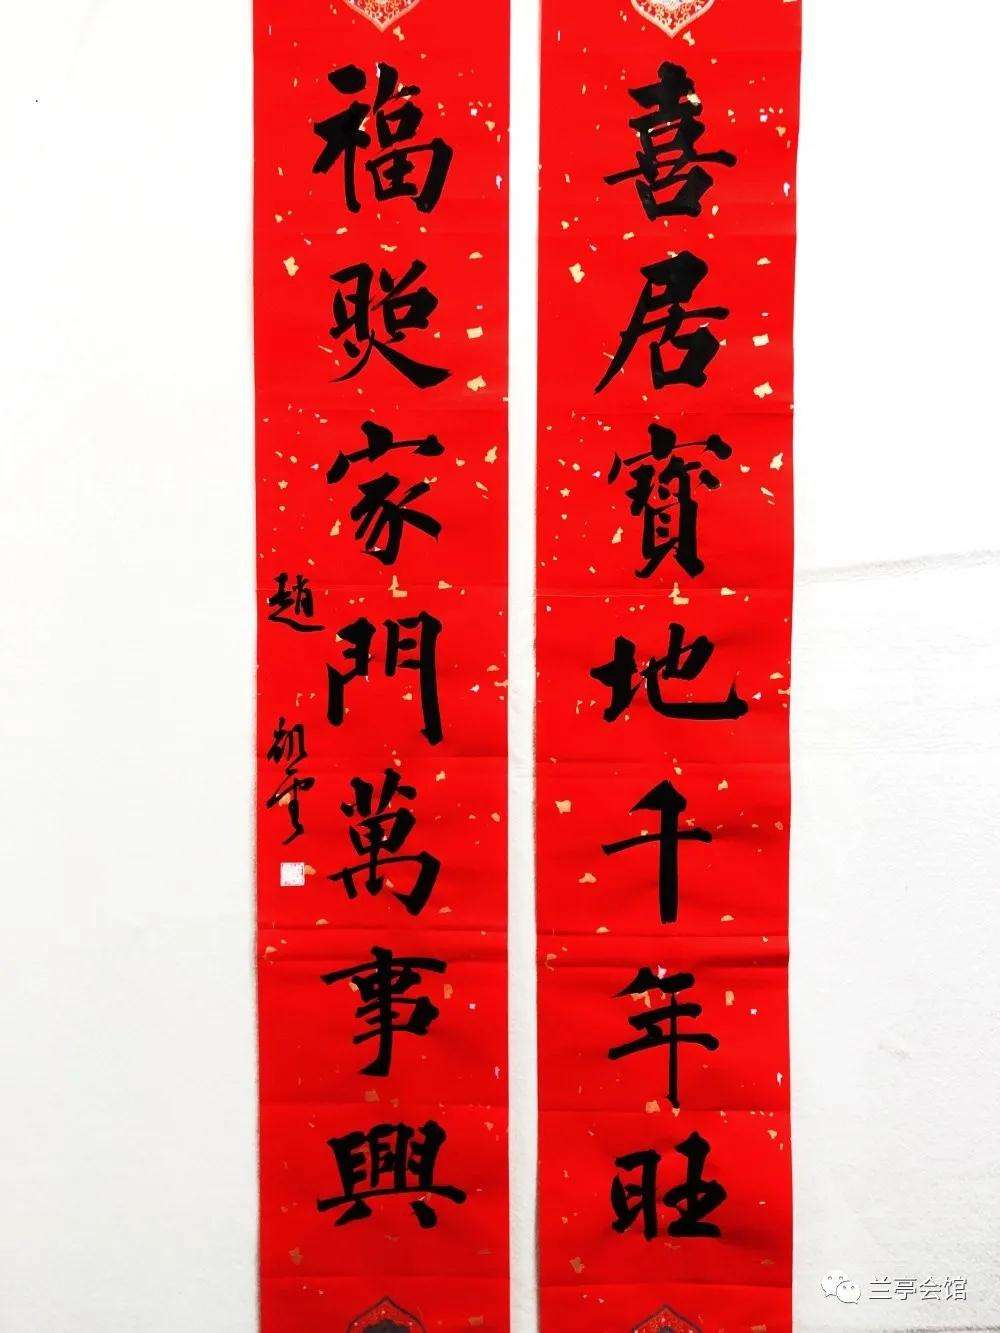 喜居寶地千年旺
福照家門萬事興
趙
兰亭会馆